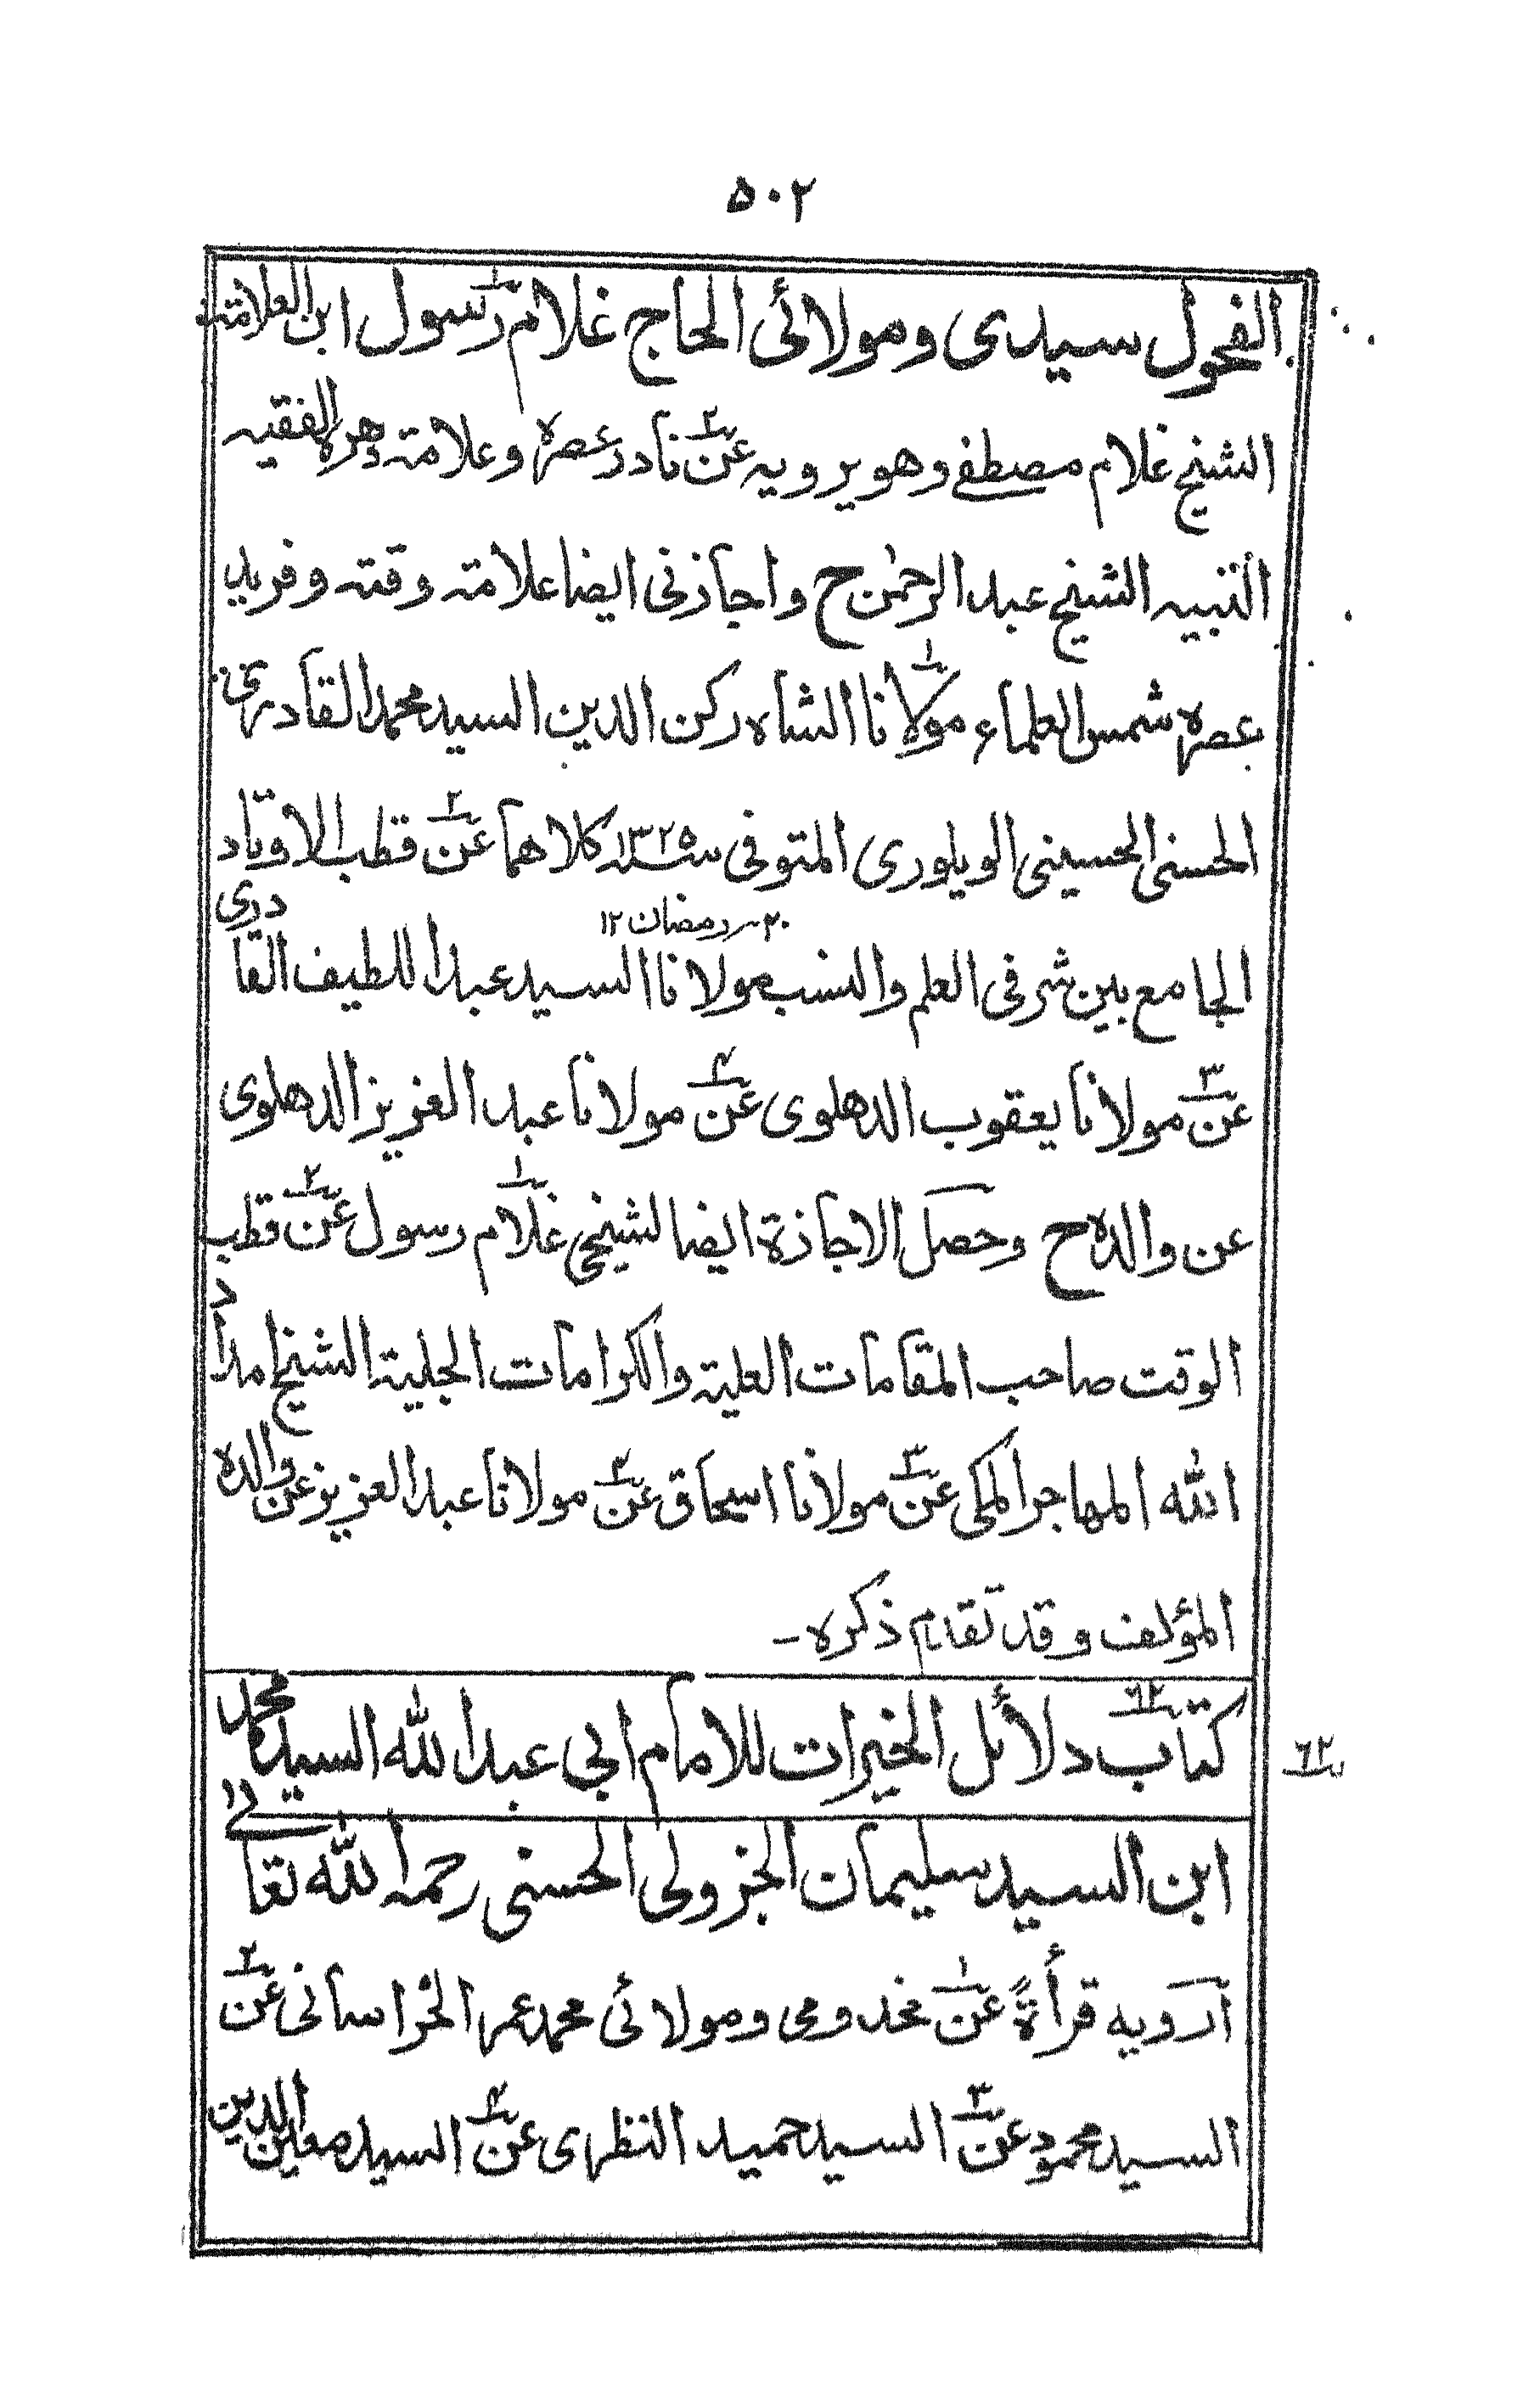 ٥٠٢
الفحول سیدی ومولائی الحاج غلام رسول ابن العلامة
الشیخ غلام مصطفے وهو یرویه عن نادر عصره وعلامته دهره الفقیه
النبیه الشیخ عبد الرحمٰن ح واجازنی ایضا علامته وقته وفرید
عصره شمس العلماء مولانا الشاه رکن الدین السید محمد القادری
الحسنی الحسینی الویلوری المتوفی سنه ١٣٢٥ کلاهما عن قطب الاوتاد
٢٠ رمضان ١٢
الجامع بین شرفی العلم والنسب مولانا السید عبد اللطیف القادری
عن مولانا یعقوب الدهلوی عن مولانا عبد العزیز الدهلوی
عن والده ح وحصل الاجازة ایضا لشیخی غلام رسول عن قطب
الوقت صاحب المقامات العلیة والکرامات الجلیة الشیخ امداد
الله المهاجر المکی عن مولانا اسحاق عن مولانا عبد العزیز عن والده
المؤلف وقد تقدم ذکره -
کتاب دلائل الخیرات للامام ابی عبد الله السید محمد
٦٢
ابن السید سلیمان الجزولی الحسنی رحمه الله تعالے
آرویه قرأةً عن مخدومی ومولائی محمد عمر الخراسانی عن
السید محمود عن السید حمید النظری عن السید معین الدین